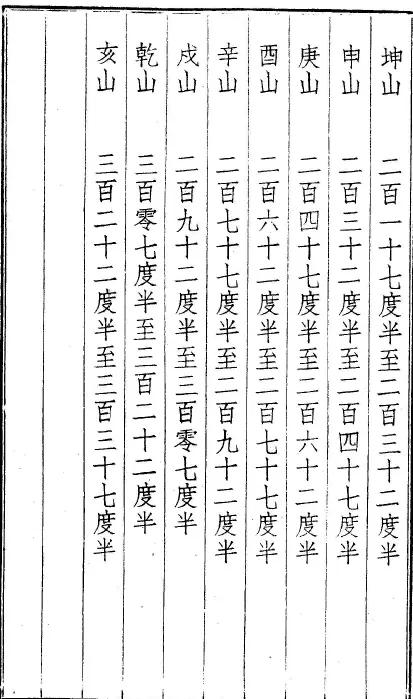 坤山　二百一十七度半至二百三十二度半
申山　二百三十二度半至二百四十七度半
庚山　二百四十七度半至二百六十二度半
酉山　二百六十二度半至二百七十七度半
辛山　二百七十七度半至二百九十二度半
戍山　二百九十二度半至三百零七度半
乾山　三百零七度半至三百二十二度半
亥山　三百二十二度半至三百三十七度半